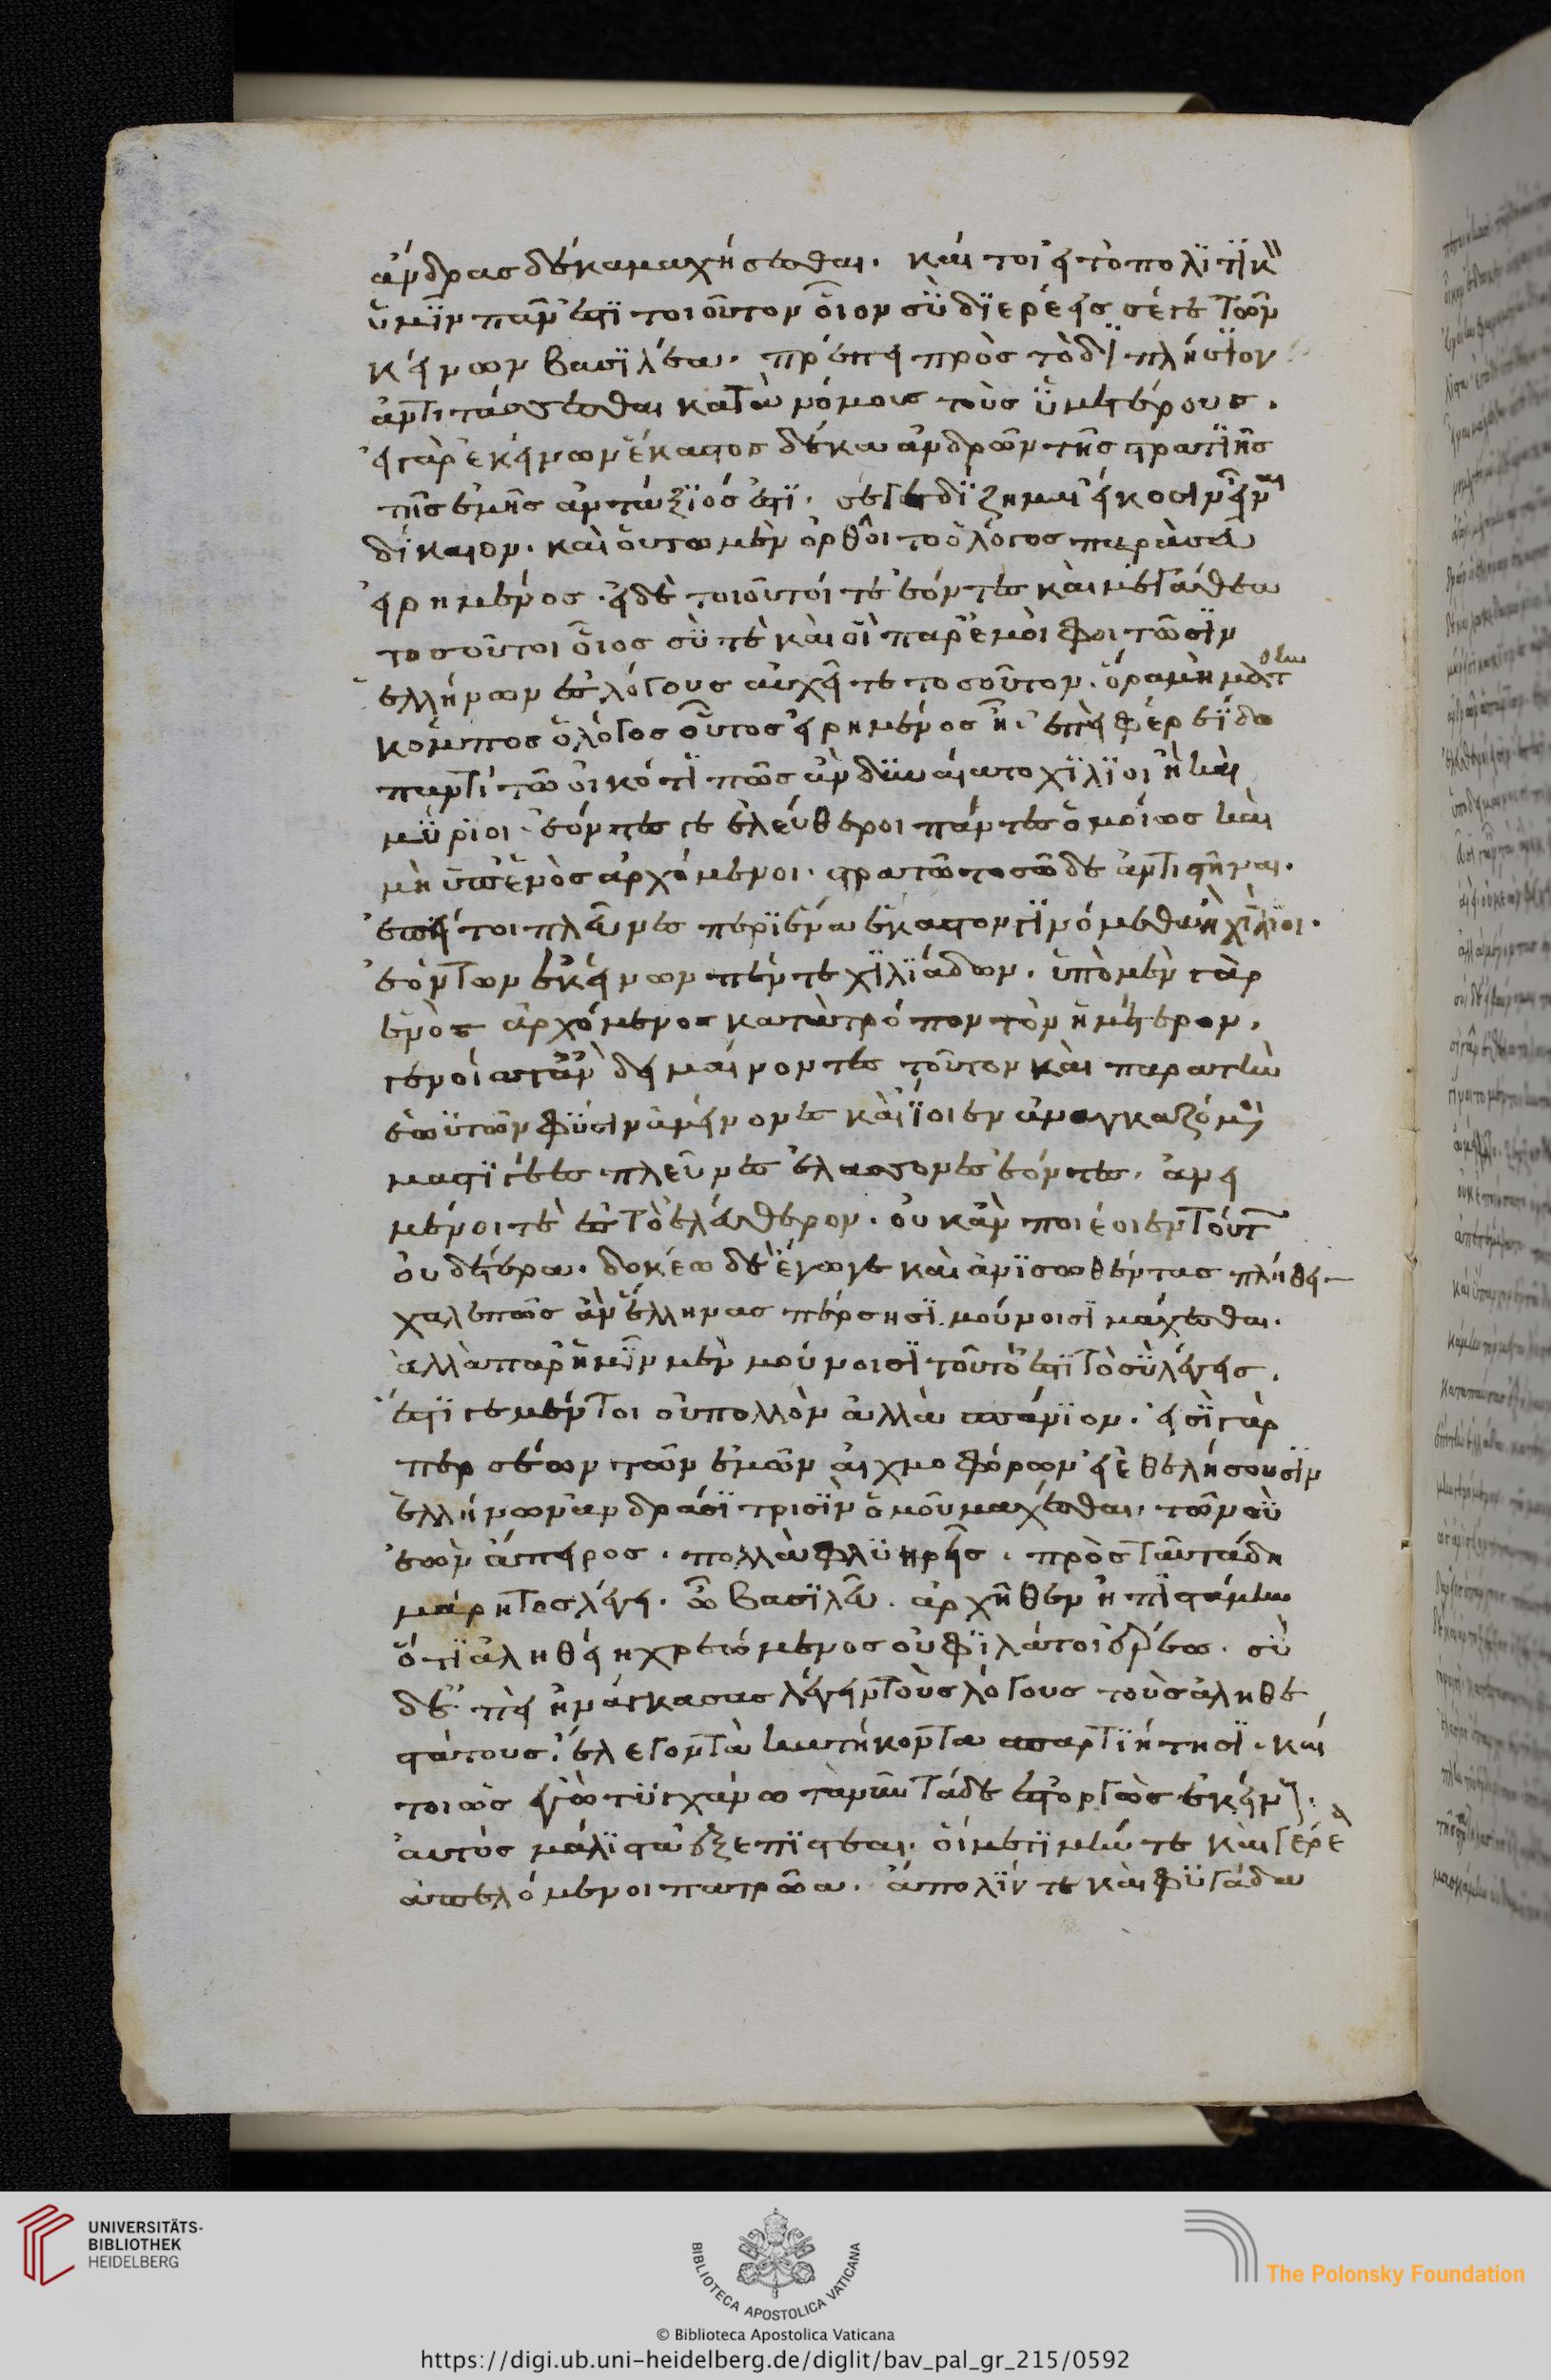 ἄνδρας δέκα μαχήσεσθαι. καί τοι εἰ τὸ πολιτικὸν
ὑμῖν πᾶν ἐστὶ τοιοῦτον οἷον σὺ διερέεις σέ γε τῶν
κείνων βασιλέα. πρέπει πρὸς τὸ διπλήσιον
ἀντιτάσσεσθαι κατὰ νόμους τοὺς ὑμετέρους.
εἰ γὰρ ἐκείνων ἕκαστος δέκα ἀνδρῶν τῆς στρατιῆς
τῆς ἐμῆς ἀντάξιός ἐστι. σὲ γε δίζημαι εἴκοσιν εἶναι
δίκαιον. καὶ οὕτω μὲν ὀρθοῖτο ὁ λόγος παρὰ σεῦ
εἰρημένος. εἰ δὲ τοιοῦτοί τε ἐόντες καὶ μεγάθεα
τοσοῦτοι οἷος σύ τε καὶ οἳ παρ' ἐμοὶ φοιτῶσιν
ἑλλήνων ἐς λόγους αὐχεῖτε τοσοῦτον. ὅρα μὴ μάτην
κόμπος ὁ λόγος οὗτος εἰρημένος ᾖ. ἐπεὶ φέρε ἴδω
παντὶ τῷ οἰκότι πῶς ἂν δυναίατο χίλιοι ἢ καὶ
μύριοι. ἐόντες γε ἐλεύθεροι πάντες ὁμοίως καὶ
μὴ ὑπ' ἑνὸς ἀρχόμενοι. στρατῷ τοσῷδε ἀντιστῆναι.
ἐπεί τοι πλεῦνες περὶ ἕνα ἕκαστον γινόμεθα ἢ χίλιοι.
ἐόντων ἐκείνων πέντε χιλιάδων. ὑπὸ μὲν γὰρ
ἑνὸς ἀρχόμενοι κατὰ τρόπον τὸν ἡμέτερον.
γενοίατ' ἂν δειμαίνοντες τοῦτον καὶ παρὰ τὴν
ἑωυτῶν φύσιν ἀμείνονες καὶ ἴοιεν ἀναγκαζόμενοι
μάστιγι ἐς πλεῦνας ἐλάσσονες ἐόντες. ἀνει
μένοι τὲ ἐς τὸ ἐλεύθερον. οὐκ ἂν ποιέοιεν τούτων
οὐδέτερα. δοκέω δὲ ἔγωγε καὶ ἀνισωθέντας πλήθει
χαλεπῶς ἂν ἕλληνας πέρσησι μούνοισι μάχεσθαι.
ἀλλὰ παρ' ἡμῖν μὲν μούνοισι τοῦτό ἐστι τὸ σὺ λέγεις.
ἔστι γε μέντοι οὐ πολλὸν ἀλλὰ σπάνιον. εἰσὶ γὰρ
περσέων τῶν ἐμῶν αἰχμοφόρων οἳ ἐθελήσουσιν
ἑλλήνων ἀνδράσι τρισὶν ὁμοῦ μάχεσθαι. τῶν σὺ
ἐὼν ἄπειρος. πολλὰ φλυηρεῖς. πρὸς ταῦτα δη
μάρητος λέγει. ὦ βασιλεῦ. ἀρχῆθεν ἠπιστάμην
ὅτι ἀληθείῃ χρεώμενος οὐ φίλα τοι ἐρέω. σὺ
δὲ ἐπεὶ ἠνάγκασας λέγειν τοὺς λόγους τοὺς ἀληθε
στάτους. ἔλεγον τὰ κατήκοντα σπαρτιήτῃσι. καί
τοι ὡς ἐγὼ τυγχάνω τὰ νῦν τάδε ἐστοργὼς ἐκείνους.
αὐτὸς μάλιστα ἐξεπίστεαι. οἵ με τιμήν τε καὶ γέρεα
ἀπελόμενοι πατρῷα. ἄπολίν τε καὶ φυγάδα
UNIVERSITÄTS-
BIBLIOTHEK
HEIDELBERG
BIBLIOTECA APOSTOLICA VATICANA
The Polonsky Foundation
© Biblioteca Apostolica Vaticana
https://digi.ub.uni-heidelberg.de/diglit/bav_pal_gr_215/0592